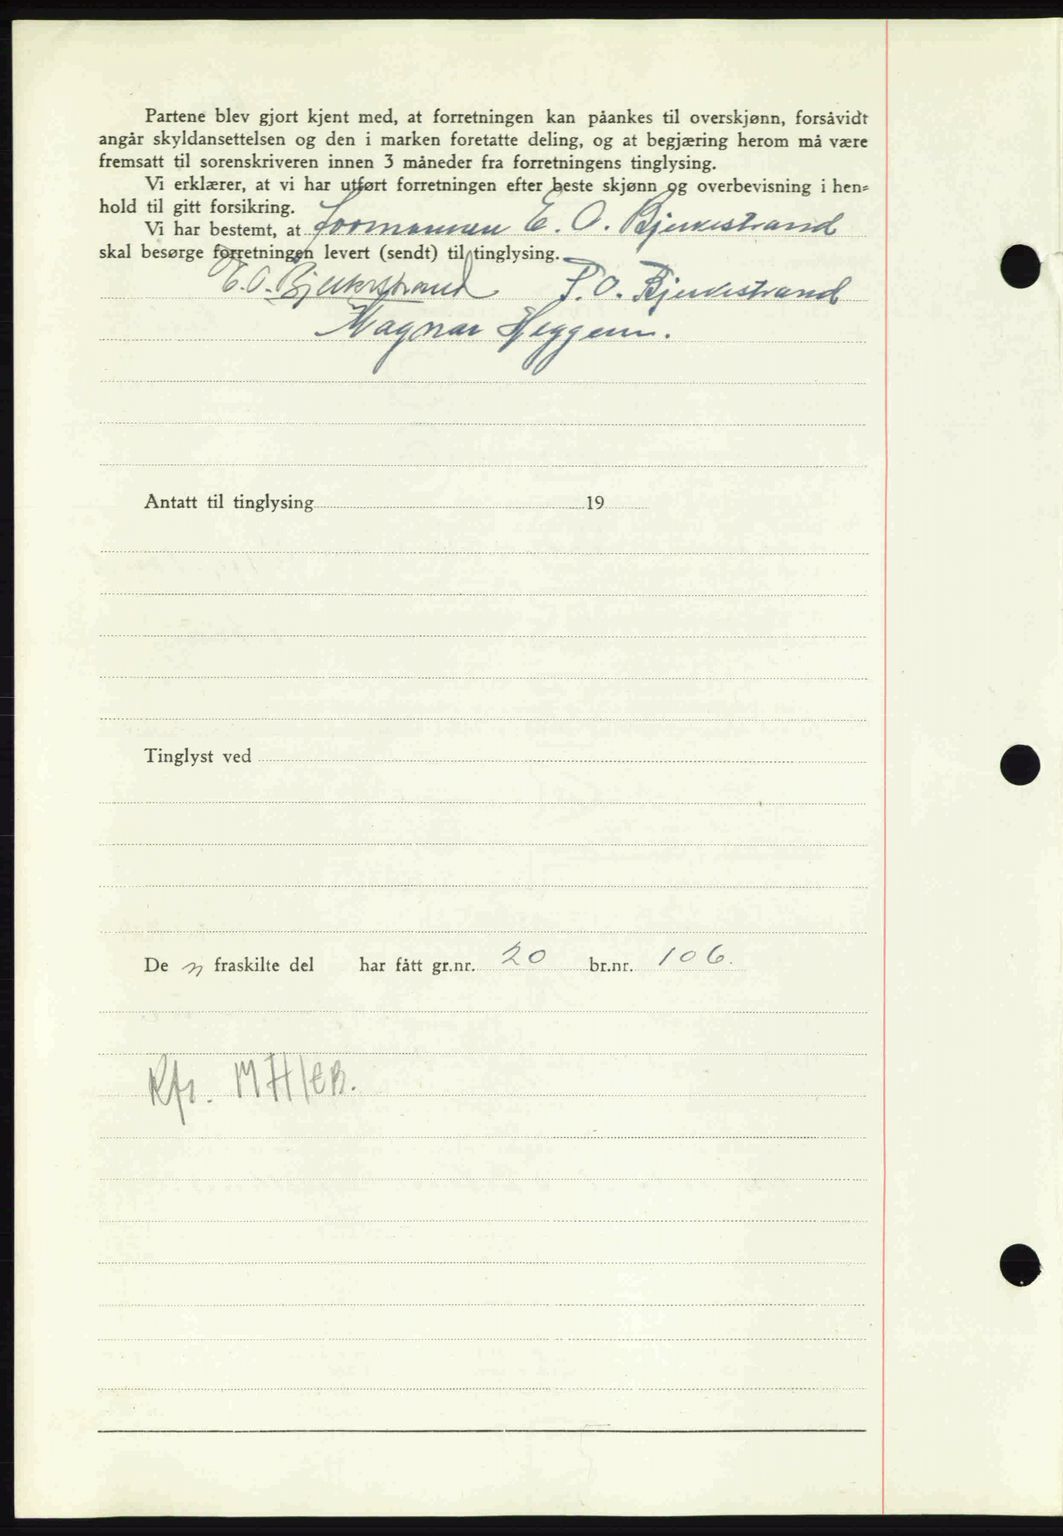 Partene blev gjort kjent med, at forretningen kan påankes til overskjønn, forsåvidt
angår skyldansettelsen og den i marken foretatte deling, og at begjæring herom må være
fremsatt til sorenskriveren innen 3 måneder fra forretningens tinglysing.
Vi erklærer, at vi har utført forretningen efter beste skjønn og overbevisning i hen-
hold til gitt forsikring.
Vi har bestemt, at formannen E. O. Bjerkestrand
skal besørge forretningen levert (sendt) til tinglysing.
E. O. Bjerkestrand P. O. Bjerkestrand
Magnar Heggem.
Antatt til tinglysing 19
Tinglyst ved
De n fraskilte del har fått gr.nr. 20 br.nr. 106.
Rfr. MH/EB.